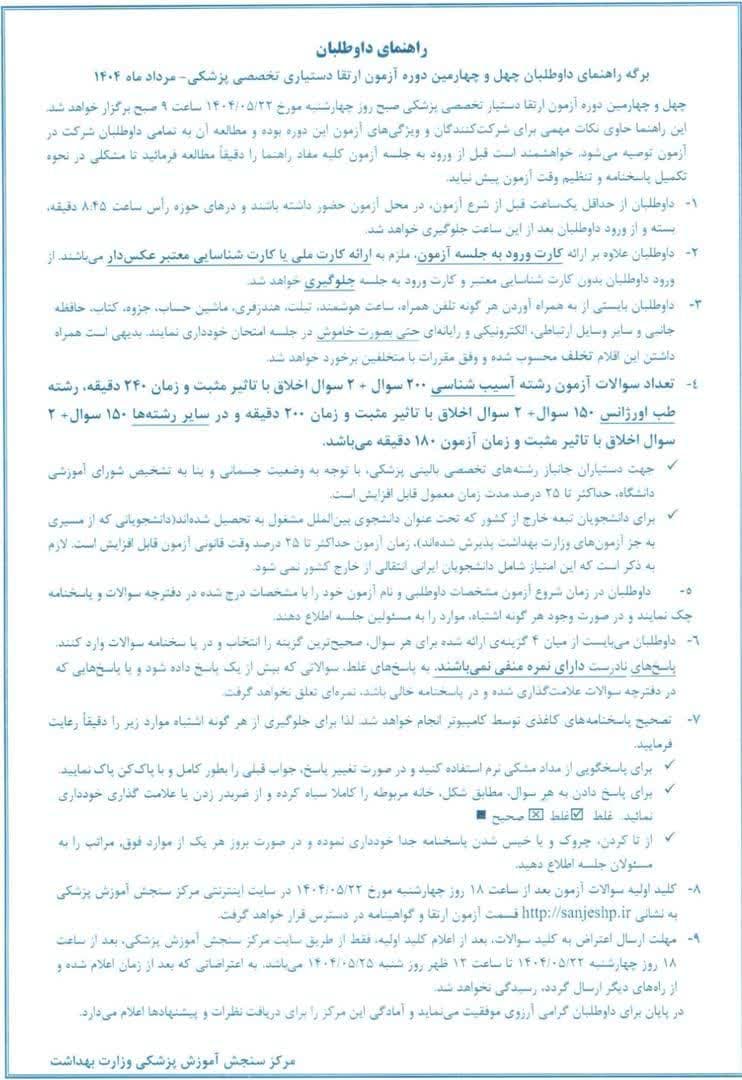 راهنمای داوطلبان
برگه راهنمای داوطلبان چهل و چهارمین دوره آزمون ارتقا دستیاری تخصصی پزشکی- مرداد ماه ۱۴۰۴
چهل و چهارمین دوره آزمون ارتقا دستیار تخصصی پزشکی صبح روز چهارشنبه مورخ ۱۴۰۴/۰۵/۲۲ ساعت ۹ صبح برگزار خواهد شد.
این راهنما حاوی نکات مهمی برای شرکت‌کنندگان و ویژگی‌های آزمون این دوره بوده و مطالعه آن به تمامی داوطلبان شرکت در
آزمون توصیه می‌شود. خواهشمند است قبل از ورود به جلسه آزمون کلیه مفاد راهنما را دقیقاً مطالعه فرمائید تا مشکلی در نحوه
تکمیل پاسخنامه و تنظیم وقت آزمون پیش نیاید.
۱- داوطلبان از حداقل یک‌ساعت قبل از شرع آزمون، در محل آزمون حضور داشته باشند و درهای حوزه رأس ساعت ۸.۴۵ دقیقه،
بسته و از ورود داوطلبان بعد از این ساعت جلوگیری خواهد شد.
۲- داوطلبان علاوه بر ارائه کارت ورود به جلسه آزمون، ملزم به ارائه کارت ملی یا کارت شناسایی معتبر عکس‌دار می‌باشند. از
ورود داوطلبان بدون کارت شناسایی معتبر و کارت ورود به جلسه جلوگیری خواهد شد.
۳- داوطلبان بایستی از به همراه آوردن هر گونه تلفن همراه، ساعت هوشمند، تبلت، هندزفری، ماشین حساب، جزوه، کتاب، حافظه
جانبی و سایر وسایل ارتباطی، الکترونیکی و رایانه‌ای حتی بصورت خاموش در جلسه امتحان خودداری نمایند. بدیهی است همراه
داشتن این اقلام تخلف محسوب شده و وفق مقررات با متخلفین برخورد خواهد شد.
۴- تعداد سوالات آزمون رشته آسیب شناسی ۲۰۰ سوال + ۲ سوال اخلاق با تاثیر مثبت و زمان ۲۴۰ دقیقه، رشته
طب اورژانس ۱۵۰ سوال+ ۲ سوال اخلاق با تاثیر مثبت و زمان ۲۰۰ دقیقه و در سایر رشته‌ها ۱۵۰ سوال+ ۲
سوال اخلاق با تاثیر مثبت و زمان آزمون ۱۸۰ دقیقه می‌باشد.
✓ جهت دستیاران جانباز رشته‌های تخصصی بالینی پزشکی، با توجه به وضعیت جسمانی و بنا به تشخیص شورای آموزشی
دانشگاه، حداکثر تا ۲۵ درصد مدت زمان معمول قابل افزایش است.
✓ برای دانشجویان تبعه خارج از کشور که تحت عنوان دانشجوی بین‌الملل مشغول به تحصیل شده‌اند(دانشجویانی که از مسیری
به جز آزمون‌های وزارت بهداشت پذیرش شده‌اند)، زمان آزمون حداکثر تا ۲۵ درصد وقت قانونی آزمون قابل افزایش است. لازم
به ذکر است که این امتیاز شامل دانشجویان ایرانی انتقالی از خارج کشور نمی شود.
۵- داوطلبان در زمان شروع آزمون مشخصات داوطلبی و نام آزمون خود را با مشخصات درج شده در دفترچه سوالات و پاسخنامه
چک نمایند و در صورت وجود هر گونه اشتباه، موارد را به مسئولین جلسه اطلاع دهند.
۶- داوطلبان می‌بایست از میان ۴ گزینه‌ی ارائه شده برای هر سوال، صحیح‌ترین گزینه را انتخاب و در پا سخنامه سوالات وارد کنند.
پاسخ‌های نادرست دارای نمره منفی نمی‌باشند. به پاسخ‌های غلط، سوالاتی که بیش از یک پاسخ داده شود و یا پاسخ‌هایی که
در دفترچه سوالات علامت‌گذاری شده و در پاسخنامه خالی باشد، نمره‌ای تعلق نخواهد گرفت.
۷- تصحیح پاسخنامه‌های کاغذی توسط کامپیوتر انجام خواهد شد. لذا برای جلوگیری از هر گونه اشتباه موارد زیر را دقیقاً رعایت
فرمایید.
✓ برای پاسخگویی از مداد مشکی نرم استفاده کنید و در صورت تغییر پاسخ، جواب قبلی را بطور کامل و با پاک‌کن پاک نمایید.
✓ برای پاسخ دادن به هر سوال، مطابق شکل، خانه مربوطه را کاملا سیاه کرده و از ضربدر زدن یا علامت گذاری خودداری
نمائید. غلط ☑غلط ☒ صحیح ■
✓ از تا کردن، چروک و یا خیس شدن پاسخنامه جدا خودداری نموده و در صورت بروز هر یک از موارد فوق، مراتب را به
مسئولان جلسه اطلاع دهید.
۸- کلید اولیه سوالات آزمون بعد از ساعت ۱۸ روز چهارشنبه مورخ ۱۴۰۴/۰۵/۲۲ در سایت اینترنتی مرکز سنجش آموزش پزشکی
به نشانی http://sanjeshp.ir قسمت آزمون ارتقا و گواهینامه در دسترس قرار خواهد گرفت.
۹- مهلت ارسال اعتراض به کلید سوالات، بعد از اعلام کلید اولیه، فقط از طریق سایت مرکز سنجش آموزش پزشکی، بعد از ساعت
۱۸ روز چهارشنبه ۱۴۰۴/۰۵/۲۲ تا ساعت ۱۲ ظهر روز شنبه ۱۴۰۴/۰۵/۲۵ می‌باشد. به اعتراضاتی که بعد از زمان اعلام شده و
از راه‌های دیگر ارسال گردد، رسیدگی نخواهد شد.
در پایان برای داوطلبان گرامی آرزوی موفقیت می‌نماید و آمادگی این مرکز را برای دریافت نظرات و پیشنهادها اعلام می‌دارد.
مرکز سنجش آموزش پزشکی وزارت بهداشت